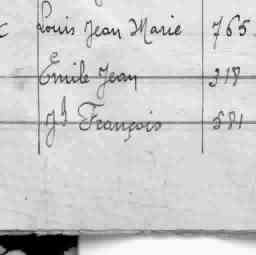 Louis Jean Marie 765
Emile Jean 318
Jh François 381